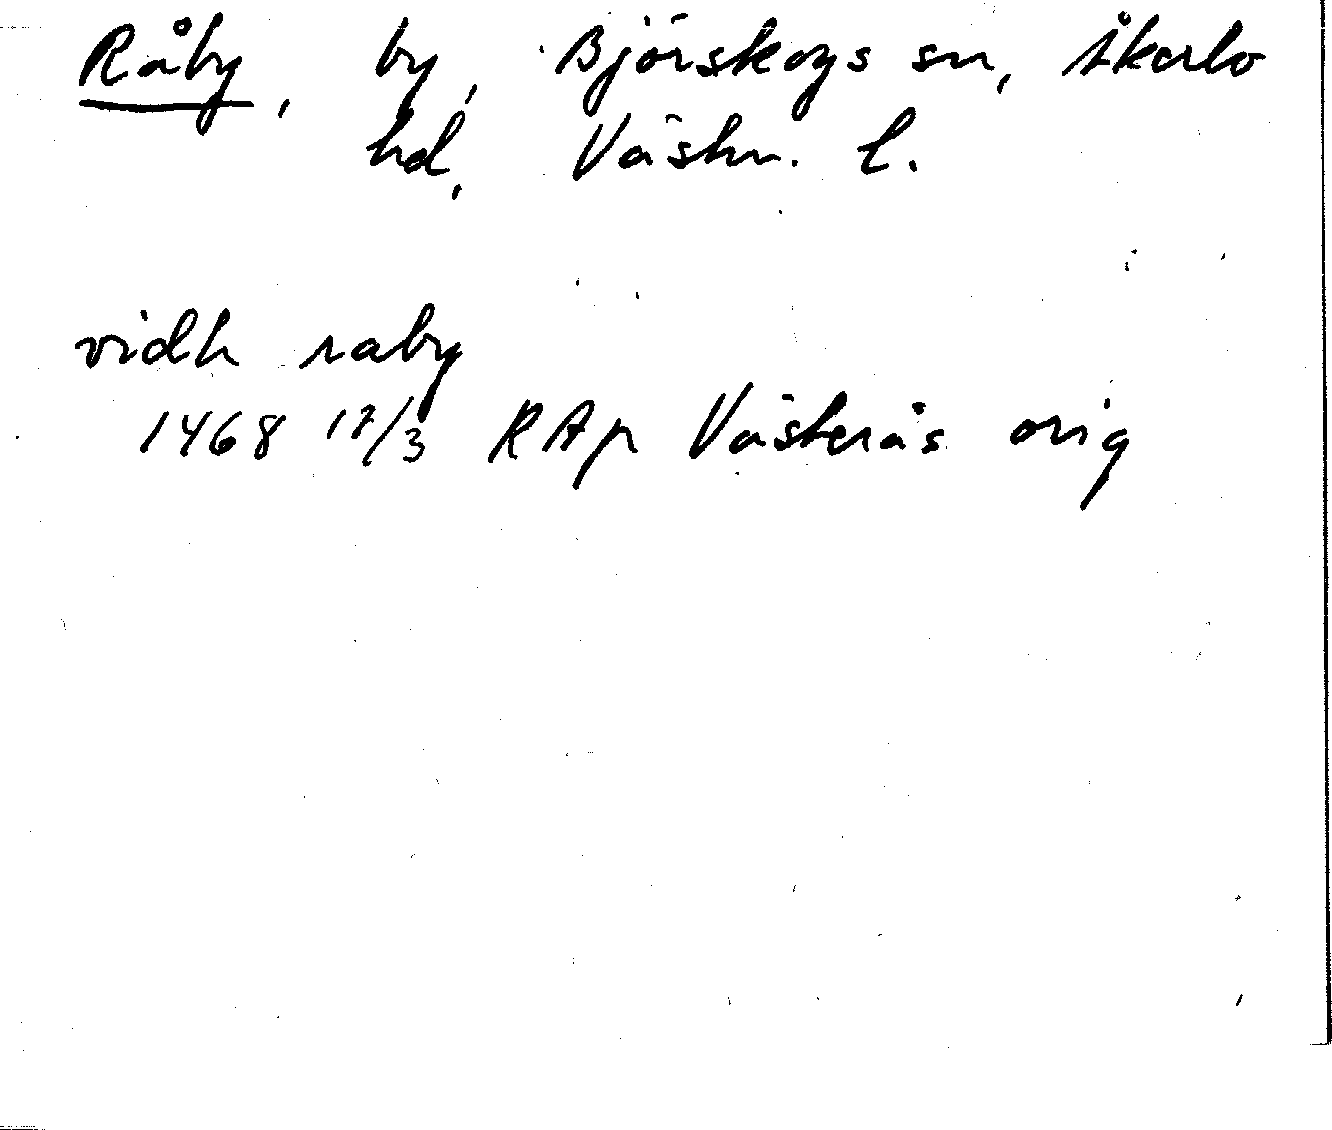 Råby, by, Björskogs sn, Åkerbo
hd, Västm. l.
vidh raby
1468 17/3 RAp Västerås orig